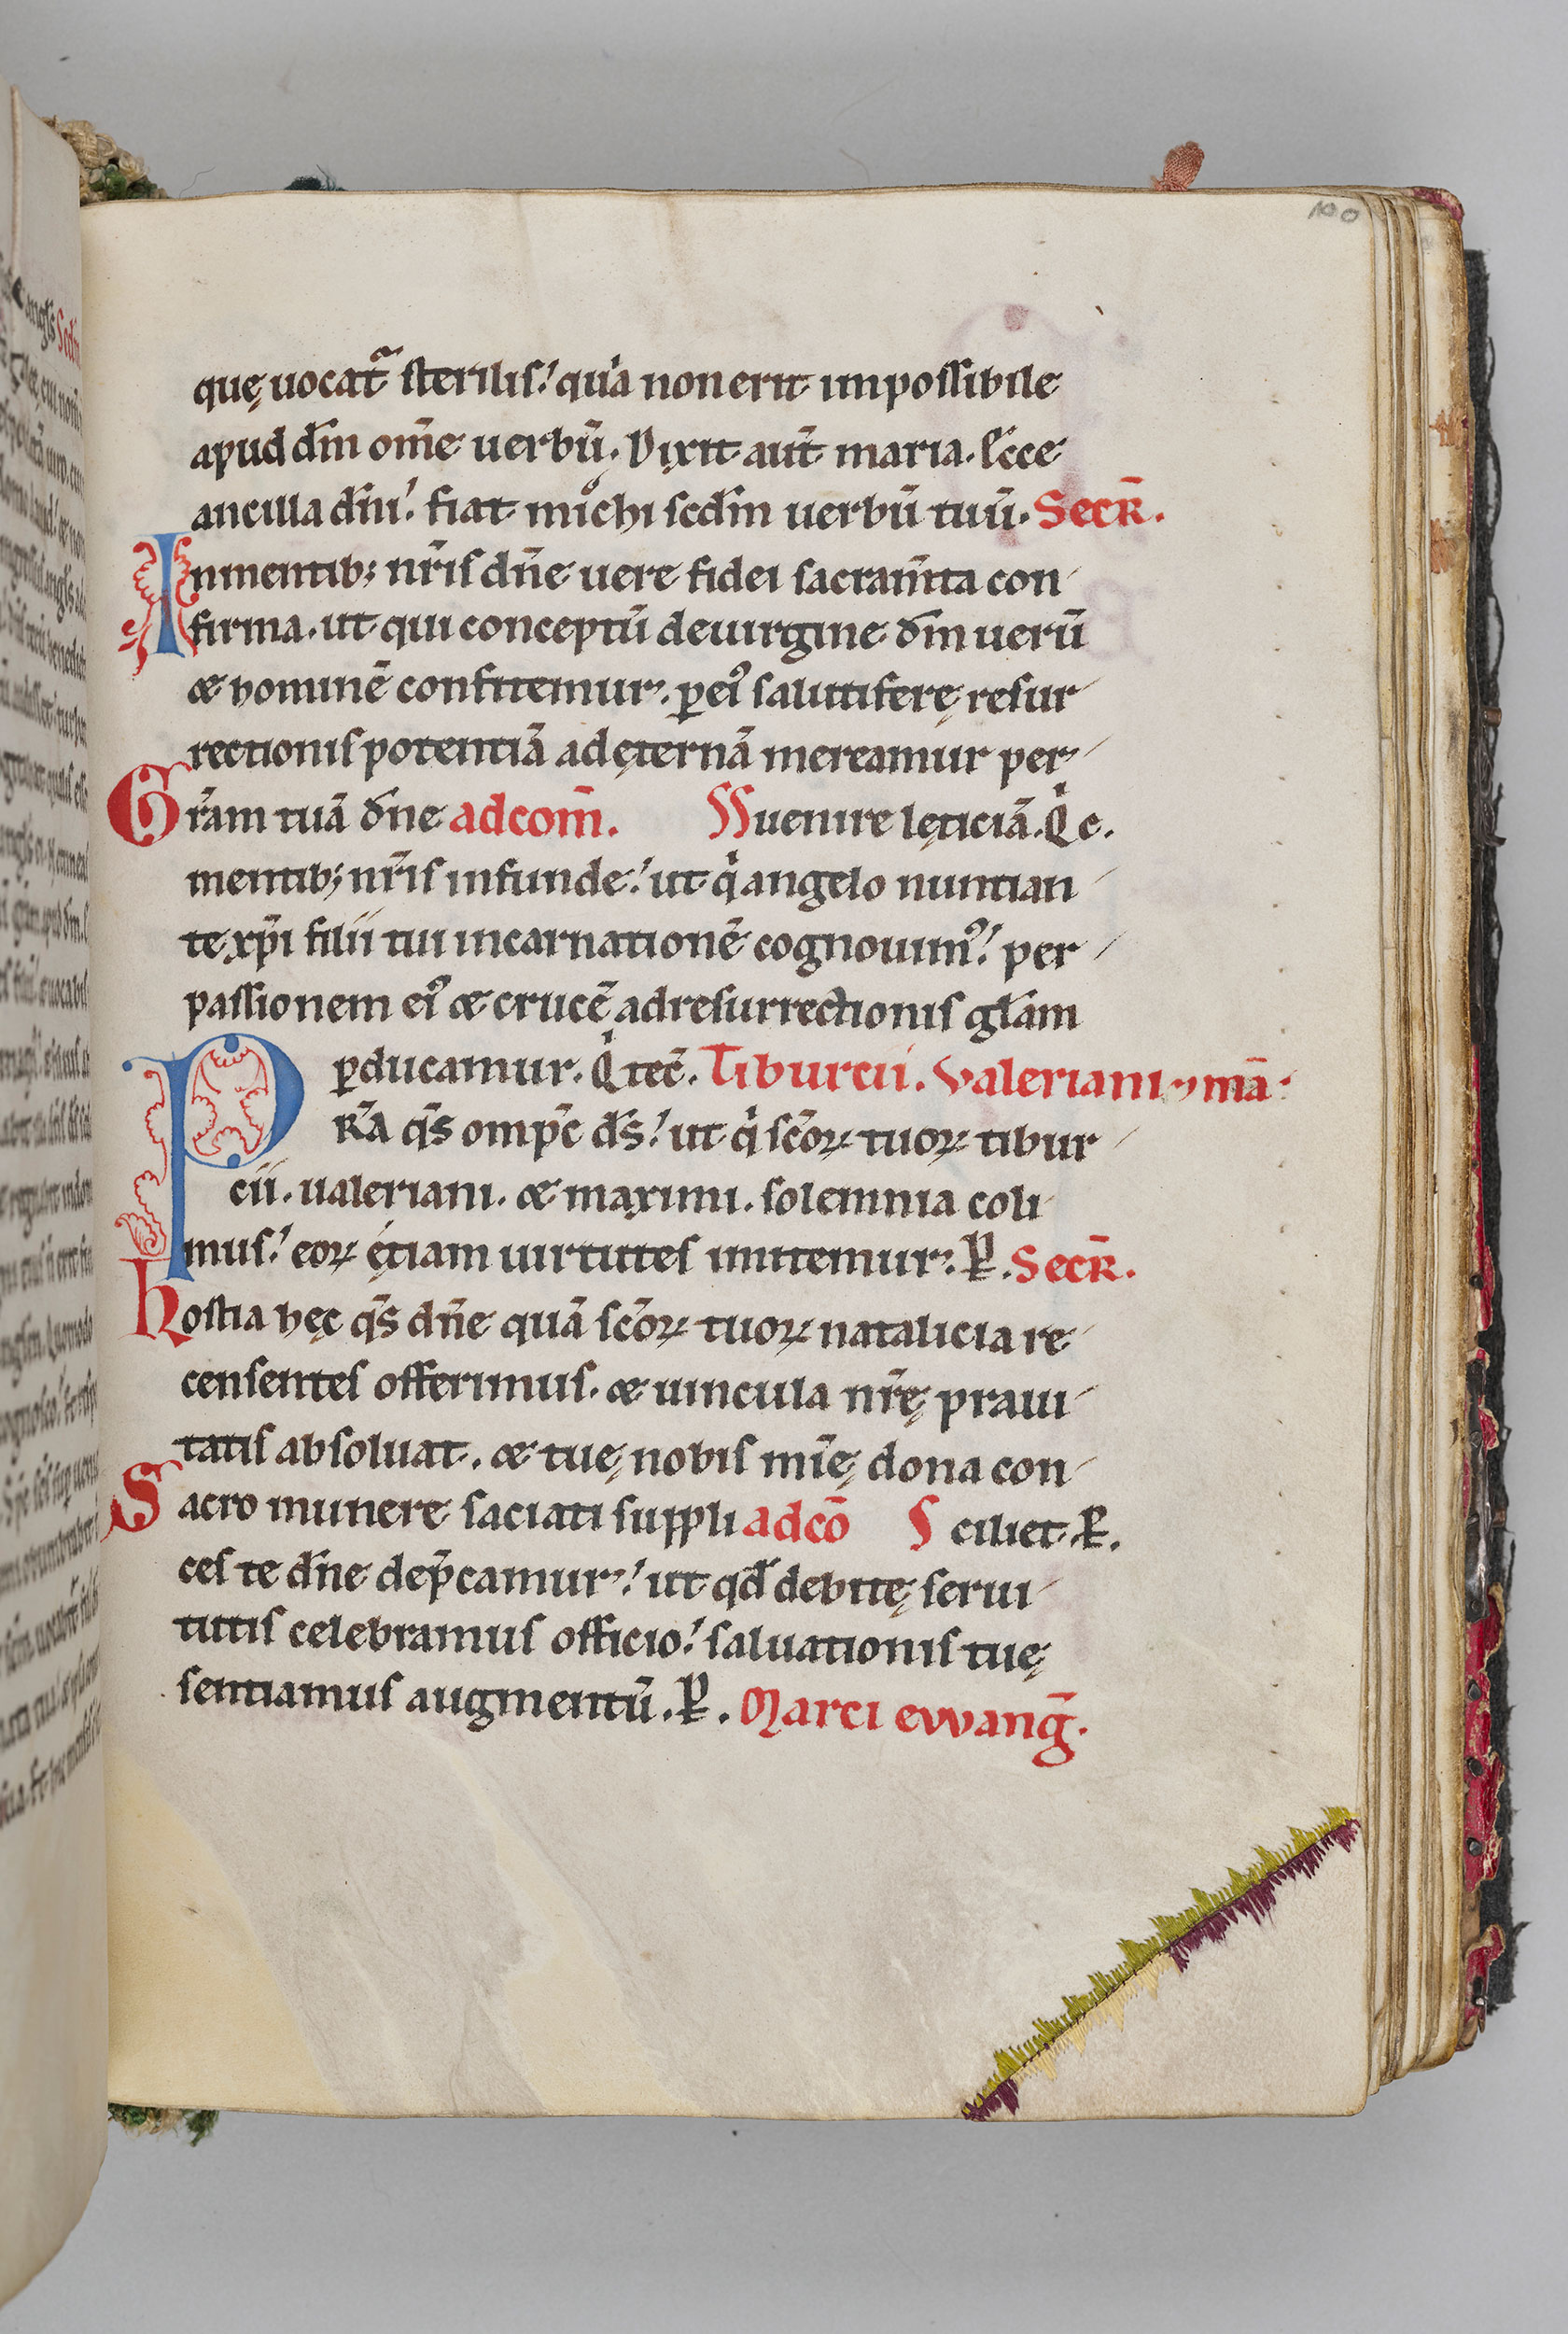 100
quę uocat̄ᵃ sterilis. quia non erit impossibile
apud dm̄ om̄e uerbū. Dixit aut̄ maria. Ecce
ancilla dn̄i. fiat michi scd̄m uerbū tuū. Secr̄.
In mentib; nr̄is dn̄e uere fidei sacram̄ta con
firma. ut qui conceptū de uirgine dm̄ uerū
& hominē confitemur. ꝑ ei᷒ salutiferę resur
rectionis potentiā ad ęternā mereamur per
Gr̄am tuā dn̄e ad com̄. uenire lęticiā. Q̇ c.
mentib; nr̄is infunde. ut q̇ angelo nuntian
te xp̄i filii tui incarnationē cognouim᷒. per
passionem ei᷒ & crucē ad resurrectionis gl̄am
ꝑducamur. Q̇ tec̄. Tiburcii. Valeriani ⁊ mā.
PR̄A qs̄ omp̄c ds̄. ut q̇ sc̄oꝝ tuoꝝ tibur
cii. ualeriani. & maximi. solemnia coli
mus. eoꝝ ętiam uirtutes imitemur. P̱. Secr̄.
hostia hęc qs̄ dn̄e quā sc̄oꝝ tuoꝝ natalicia re
censentes offerimus. & uincula nr̄ę praui
tatis absoluat. & tuę nobis mīę dona con
Sacro munere saciati suppli ad cō ciliet. P̱.
ces te dn̄e dep̄camur. ut qd̄ debitę serui
tutis celebramus officio. saluationis tuę
sentiamus augmentū. P̱. Marci evvang̅.